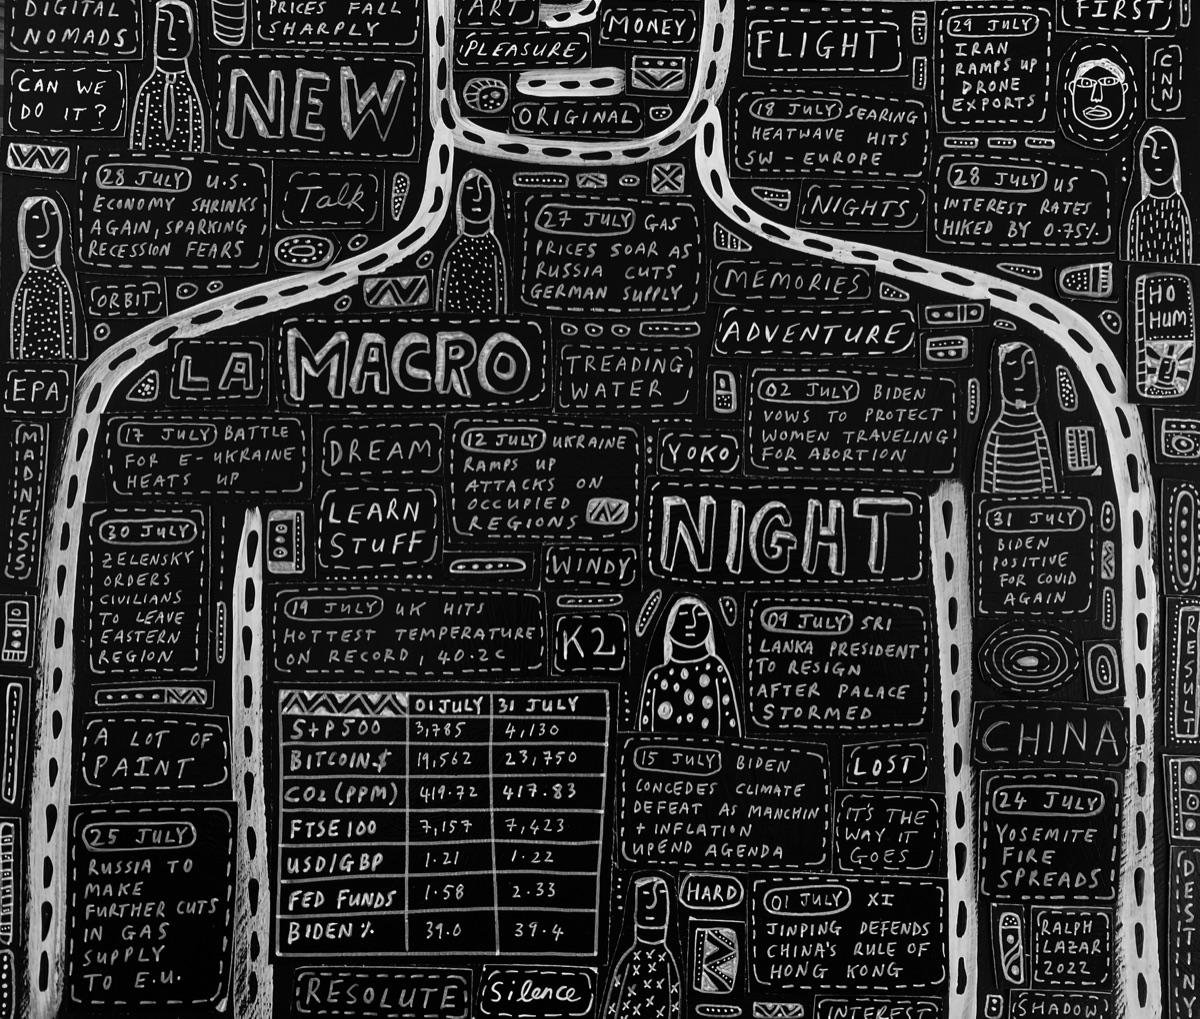 DIGITAL
NOMADS
PRICES FALL
SHARPLY
ART
PLEASURE
MONEY
FLIGHT
29 JULY
IRAN
RAMPS UP
DRONE
EXPORTS
FIRST
CNN
CAN WE
DO IT?
NEW
ORIGINAL
18 JULY SEARING
HEATWAVE HITS
SW - EUROPE
28 JULY U.S.
ECONOMY SHRINKS
AGAIN, SPARKING
RECESSION FEARS
Talk
27 JULY GAS
PRICES SOAR AS
RUSSIA CUTS
GERMAN SUPPLY
NIGHTS
28 JULY US
INTEREST RATES
HIKED BY 0.75%
ORBIT
MEMORIES
HO
HUM
EPA
LA
MACRO
TREADING
WATER
ADVENTURE
02 JULY BIDEN
VOWS TO PROTECT
WOMEN TRAVELING
FOR ABORTION
MADNESS
17 JULY BATTLE
FOR E-UKRAINE
HEATS UP
DREAM
12 JULY UKRAINE
RAMPS UP
ATTACKS ON
OCCUPIED
REGIONS
YOKO
30 JULY
ZELENSKY
ORDERS
CIVILIANS
TO LEAVE
EASTERN
REGION
LEARN
STUFF
WINDY
NIGHT
31 JULY
BIDEN
POSITIVE
FOR COVID
AGAIN
19 JULY UK HITS
HOTTEST TEMPERATURE
ON RECORD, 40.2C
K2
09 JULY SRI
LANKA PRESIDENT
TO RESIGN
AFTER PALACE
STORMED
RESULT
A LOT OF
PAINT
01 JULY 31 JULY
S+P500 3,785 4,130
BITCOIN $ 19,562 23,750
CO2 (PPM) 419.72 417.83
FTSE100 7,157 7,423
USD/GBP 1.21 1.22
FED FUNDS 1.58 2.33
BIDEN % 39.0 39.4
15 JULY BIDEN
CONCEDES CLIMATE
DEFEAT AS MANCHIN
+ INFLATION
UPEND AGENDA
LOST
IT'S THE
WAY IT
GOES
CHINA
24 JULY
YOSEMITE
FIRE
SPREADS
25 JULY
RUSSIA TO
MAKE
FURTHER CUTS
IN GAS
SUPPLY
TO E.U.
HARD
01 JULY XI
JINPING DEFENDS
CHINA'S RULE OF
HONG KONG
RALPH
LAZAR
2022
DESTINY
RESOLUTE
Silence
INTEREST
SHADOW